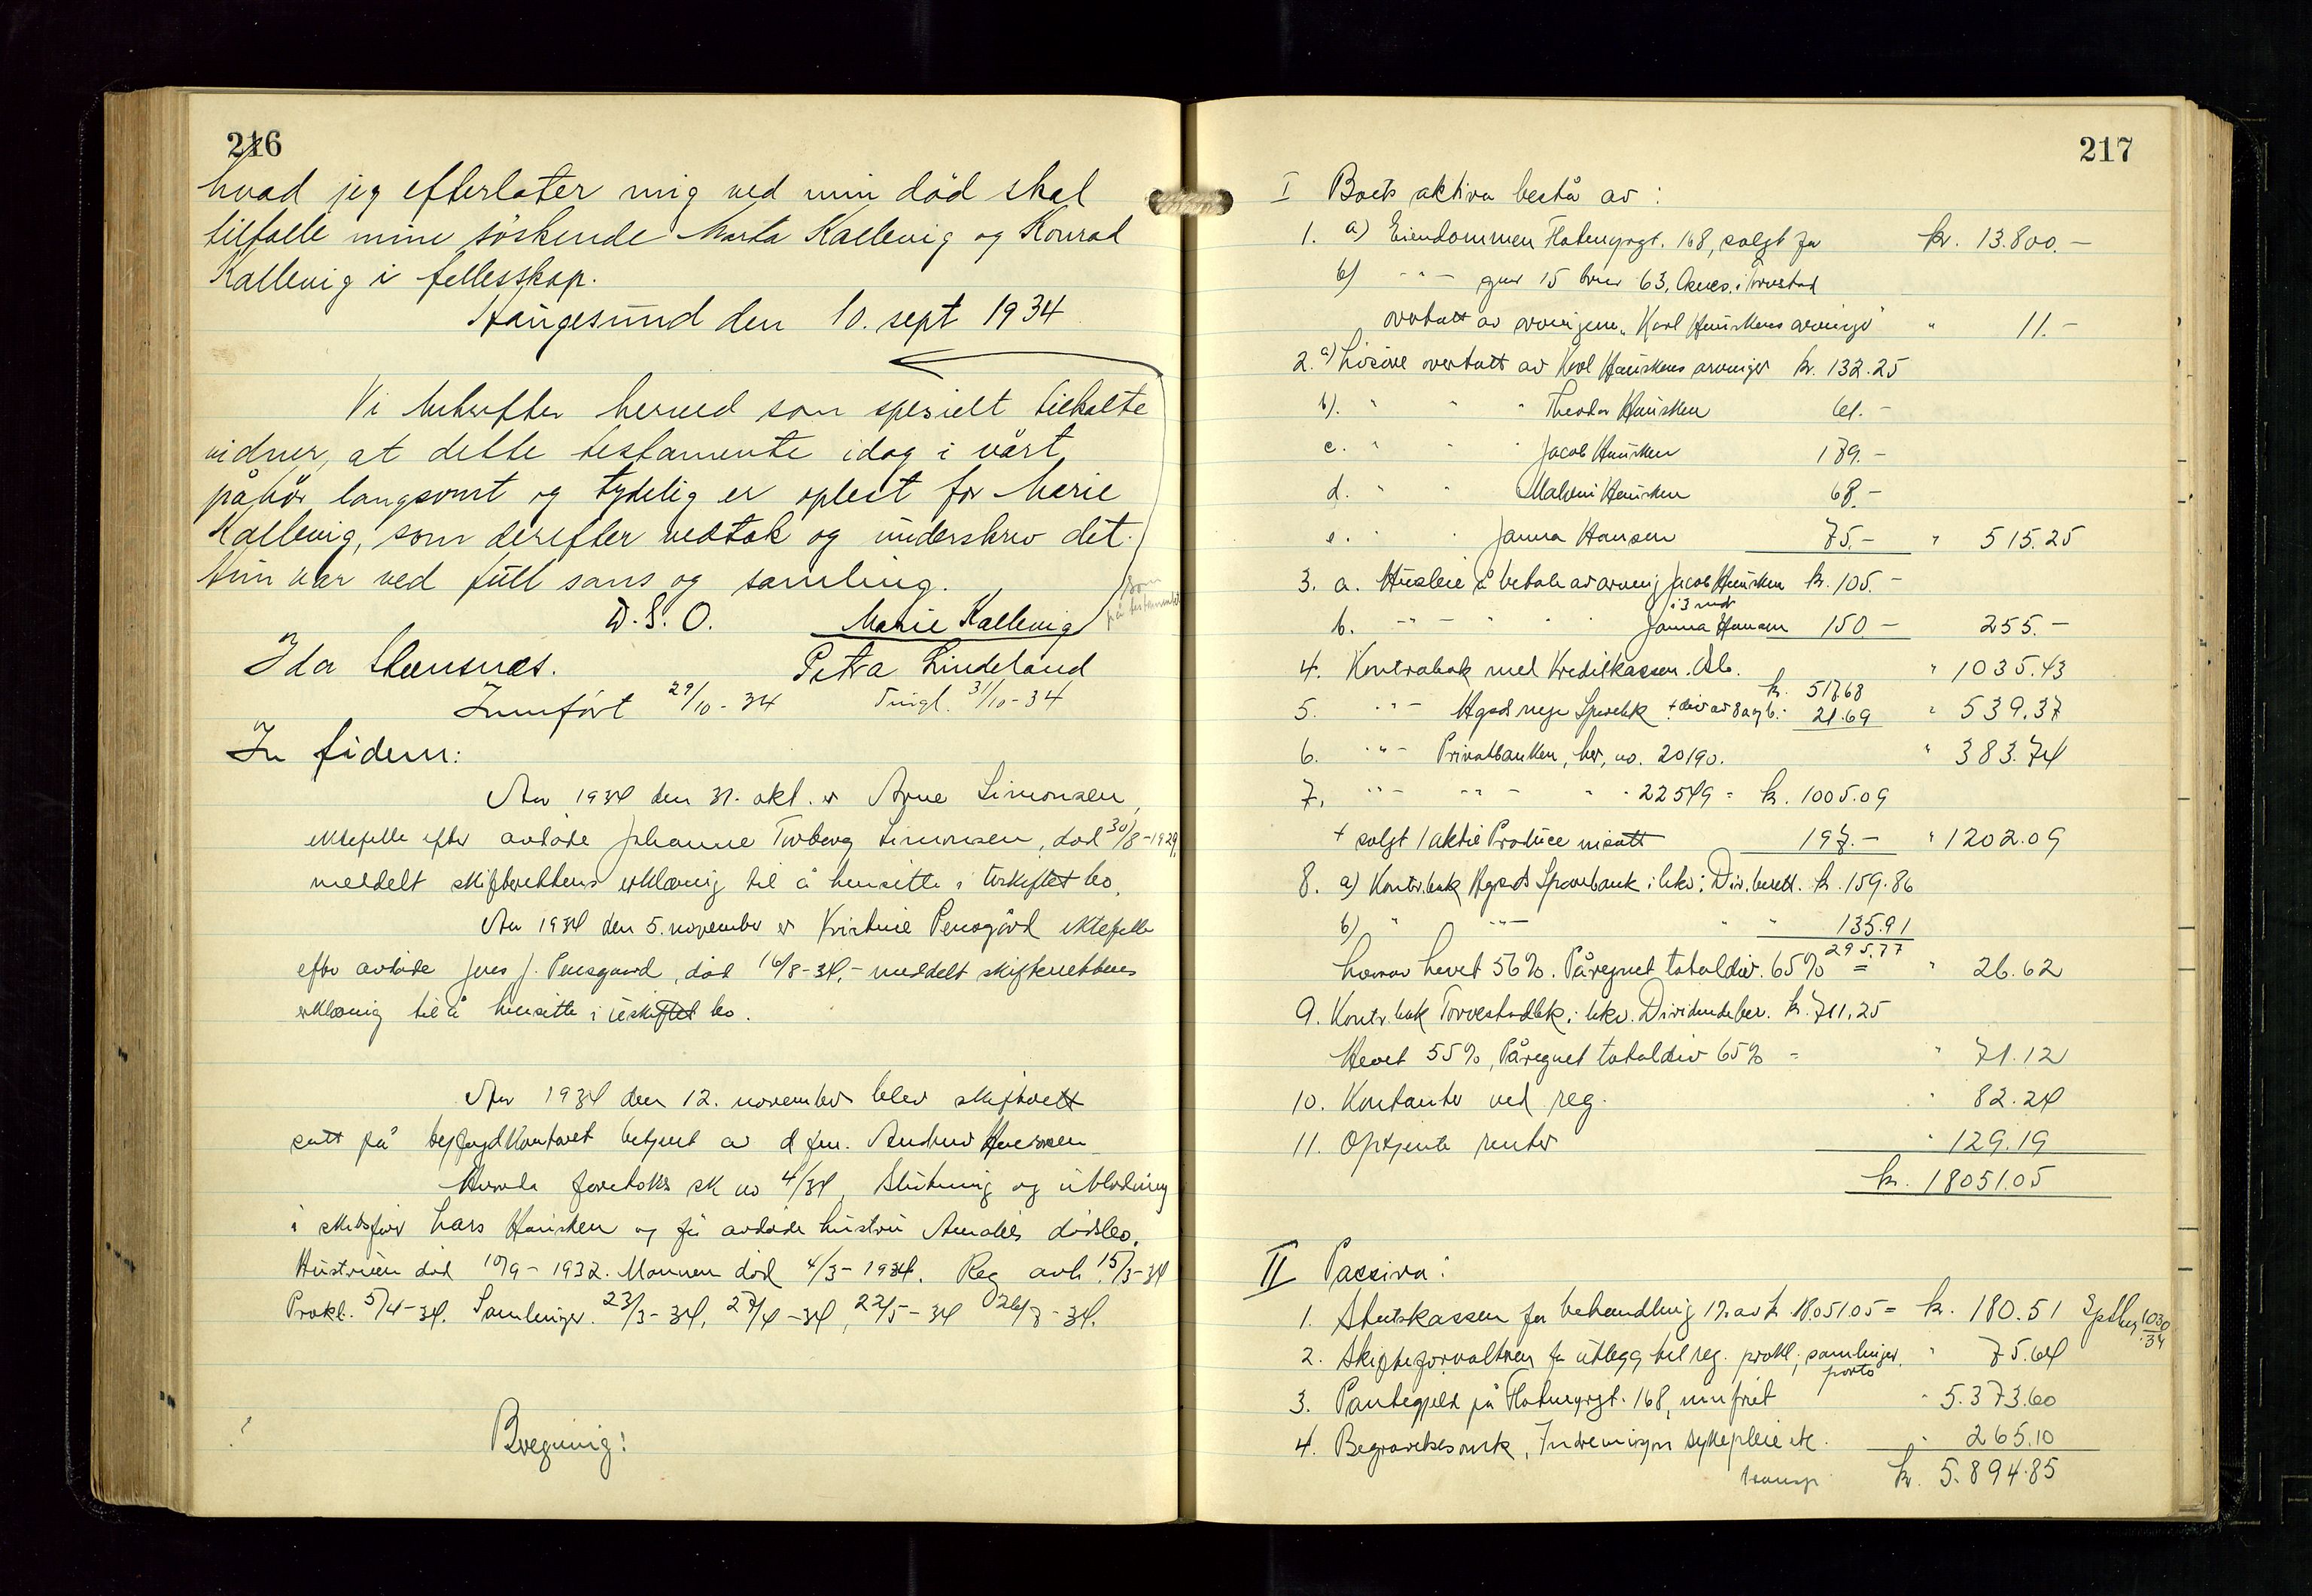 216
hvad jeg efterlater mig ved min död skal
tilfalle mine söskende Marta Kallevig og Konrad
Kallevig i fellesskap.
Haugesund den 10. sept 1934
Vi bekrefter herved som spesielt tilkalte
vidner, at dette testamente idag i vårt
påhör langsomt og tydelig er oplest for Marie
Kallevig, som derefter vedtok og underskrev det.
Hun var ved full sans og samling.
D.S.O. Marie Kallevig
som på testamentet
Ida Stensnes. Petra Lindeland
Innfört 29/10-34 Tingl. 31/10-34
In fidem:
Aar 1934 den 31. okt. er Arne Simonsen,
ektefelle efter avdöde Johanne Torborg Simonsen, död 30/8-1929,
meddelt skifterettens erklæring til å hensitte i uskiftet bo.
Aar 1934 den 5. november er Kristine Pensgård ektefelle
efter avdöde Jens J. Pensgaard, död 16/8-34,- meddelt skifterettens
erklæring til å hensitte i uskiftet bo.
Aar 1934 den 12. november blev skifterett
satt på byfogdkontoret betjent av d fm.
foretokes sk no 4/34, Slutning og utlodning
i Lars Hauskens og för avdöde hustru Amalies dödsbo.
Hustruen död 10/9-1932. Mannen död 4/3-1934. Reg avh. 15/3-34
Prokl. 5/4-34. Samlinger. 23/3-34, 27/4-34, 22/5-34 26/7-34.
Beregning:
217
I Boets aktiva bestå av:
1. a) Eiendommen 168, solgt for kr. 13.800.-
b) -"- gnr 15 bnr 63, i Torvestad
overtatt av arvingene "Karl Hauskens arvinger" " 11.-
2. a) Lösöre overtatt av Karl Hauskens arvinger kr. 132.25
b). " " " Theodor Hausken 61.-
c. " " " Jacob Hausken 179.-
d. " " Hausken 68.-
e. " " Janna Hansen 75.- " 515.25
3. a. Husleie å betale av arving Jacob Hausken kr. 105.-
i 3 mdr
b. -"- " " " Janna Hansen 150.- 255.-
4. Kontrabok med Kreditkassen. " 1035.43
5. -"- Hgsds nye Sparebk kr. 517.68
+ div av 21.69 " 539.37
6. -"- Privatbanken, her, no. 20190. " 383.74
7. -"- -"- " " 22549 = kr. 1005.09
+ solgt 1 aktie Produce 197.- " 1202.09
8. a) Kontr.bok Hgsds Sparebank i likv: Div.berett. kr. 159.86
b) " -"- " " 135.91
295.77
herav hevet 56%. Påregnet totaldiv. 65% = " 26.62
9. Kontr.bok Torvestadbk. i likv. Dividendeber. kr. 711.25
Hevet 55%, Påregnet totaldiv 65% = " 71.12
10. Kontanter ved reg. " 82.24
11. Optjente renter " 129.19
kr. 18051.05
II Passiva:
1. Statskassen for behandling 1% av kr 18.051.05 = kr. 180.51 1030/34
2. Skifteforvalteren for utlegg til reg. prokl, samlinger, " 75.64
porto
3. Pantegjeld på 168, innfriet " 5.373.60
4. sykepleie etc. " 265.10
transp kr. 5.894.85